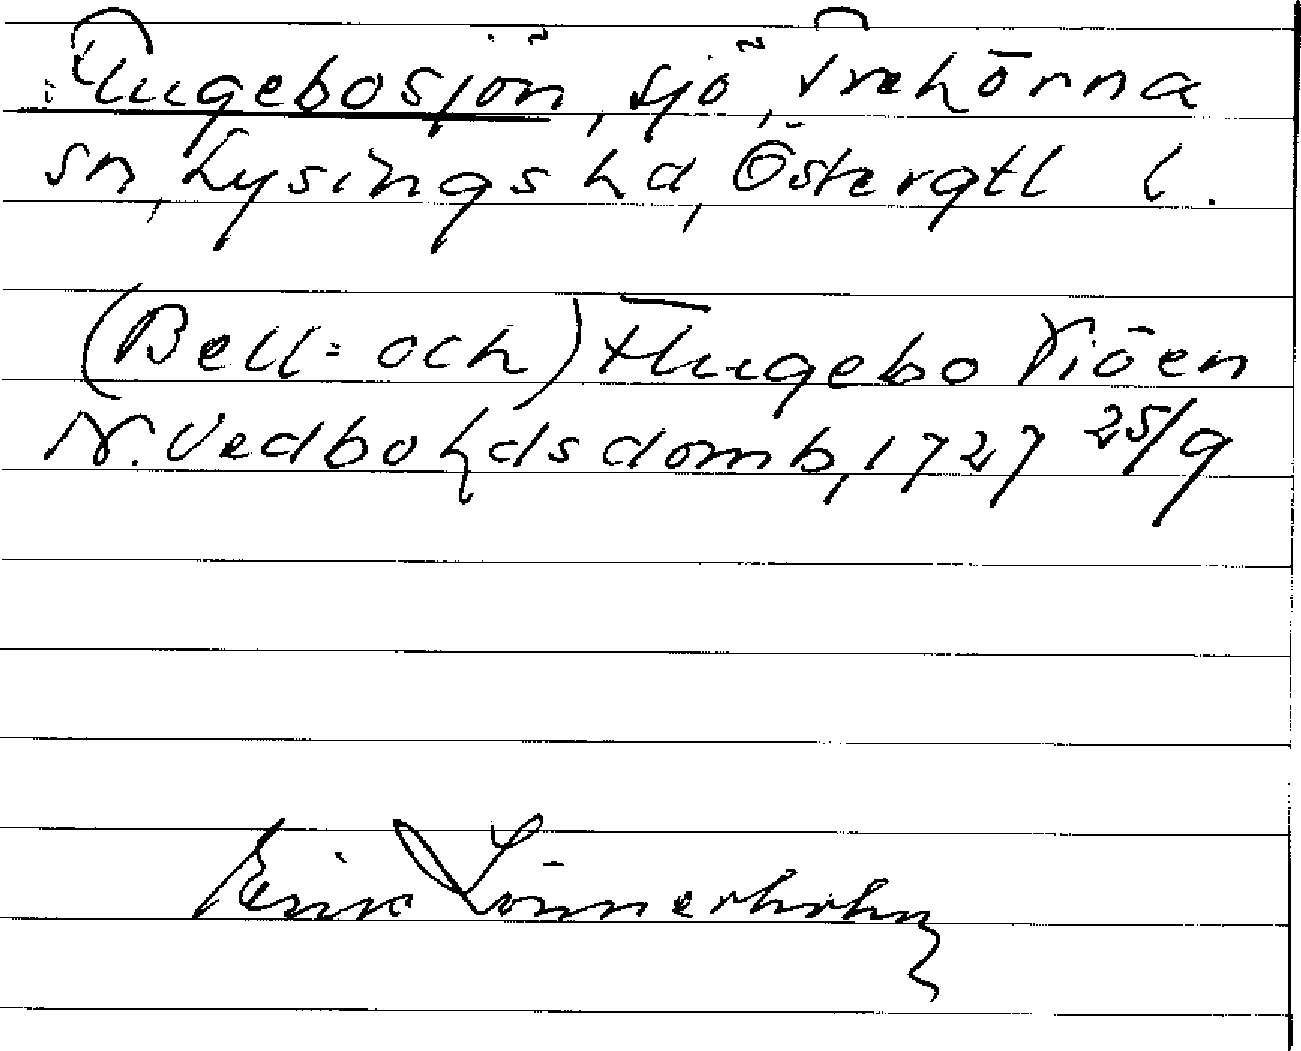 Flugebosjön, sjö, Trehörna
sn, Lysings hd, Östergtl l.
(Bell= och) Flugebo Siöen
N. Vedbo hds domb, 1727 25/9
Erik Lönnerholm